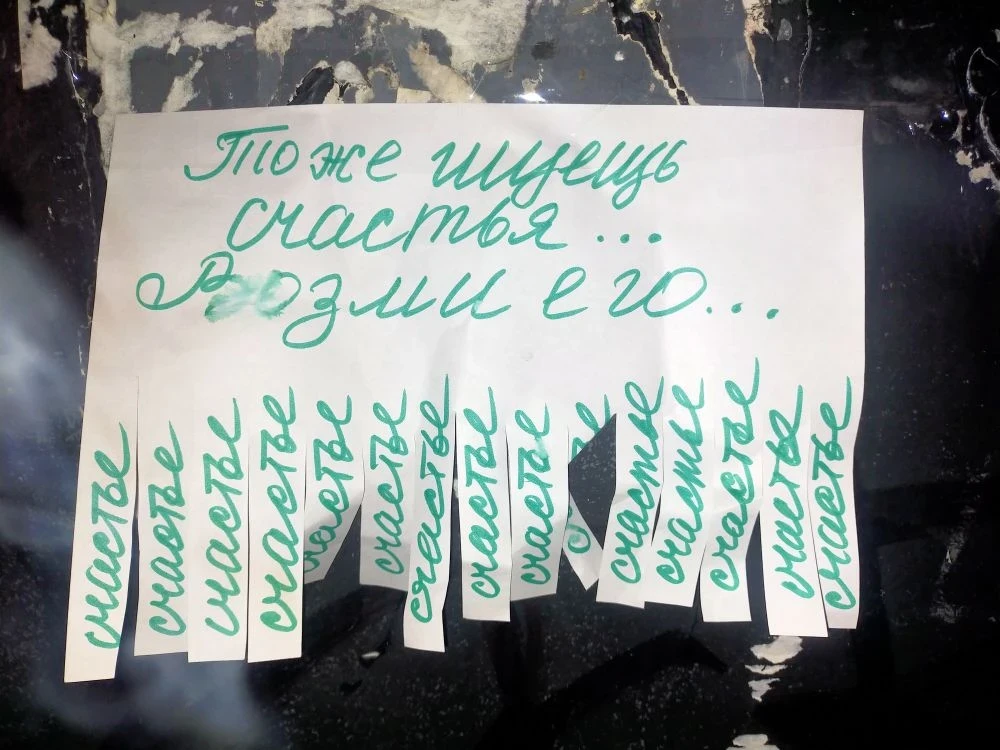 Тоже ищещь
счастья...
Возми его...
счастье
счастье
счастье
счастье
счастье
счастье
счастье
счастье
счастье
счастье
счастье
счастье
счастье
счастье